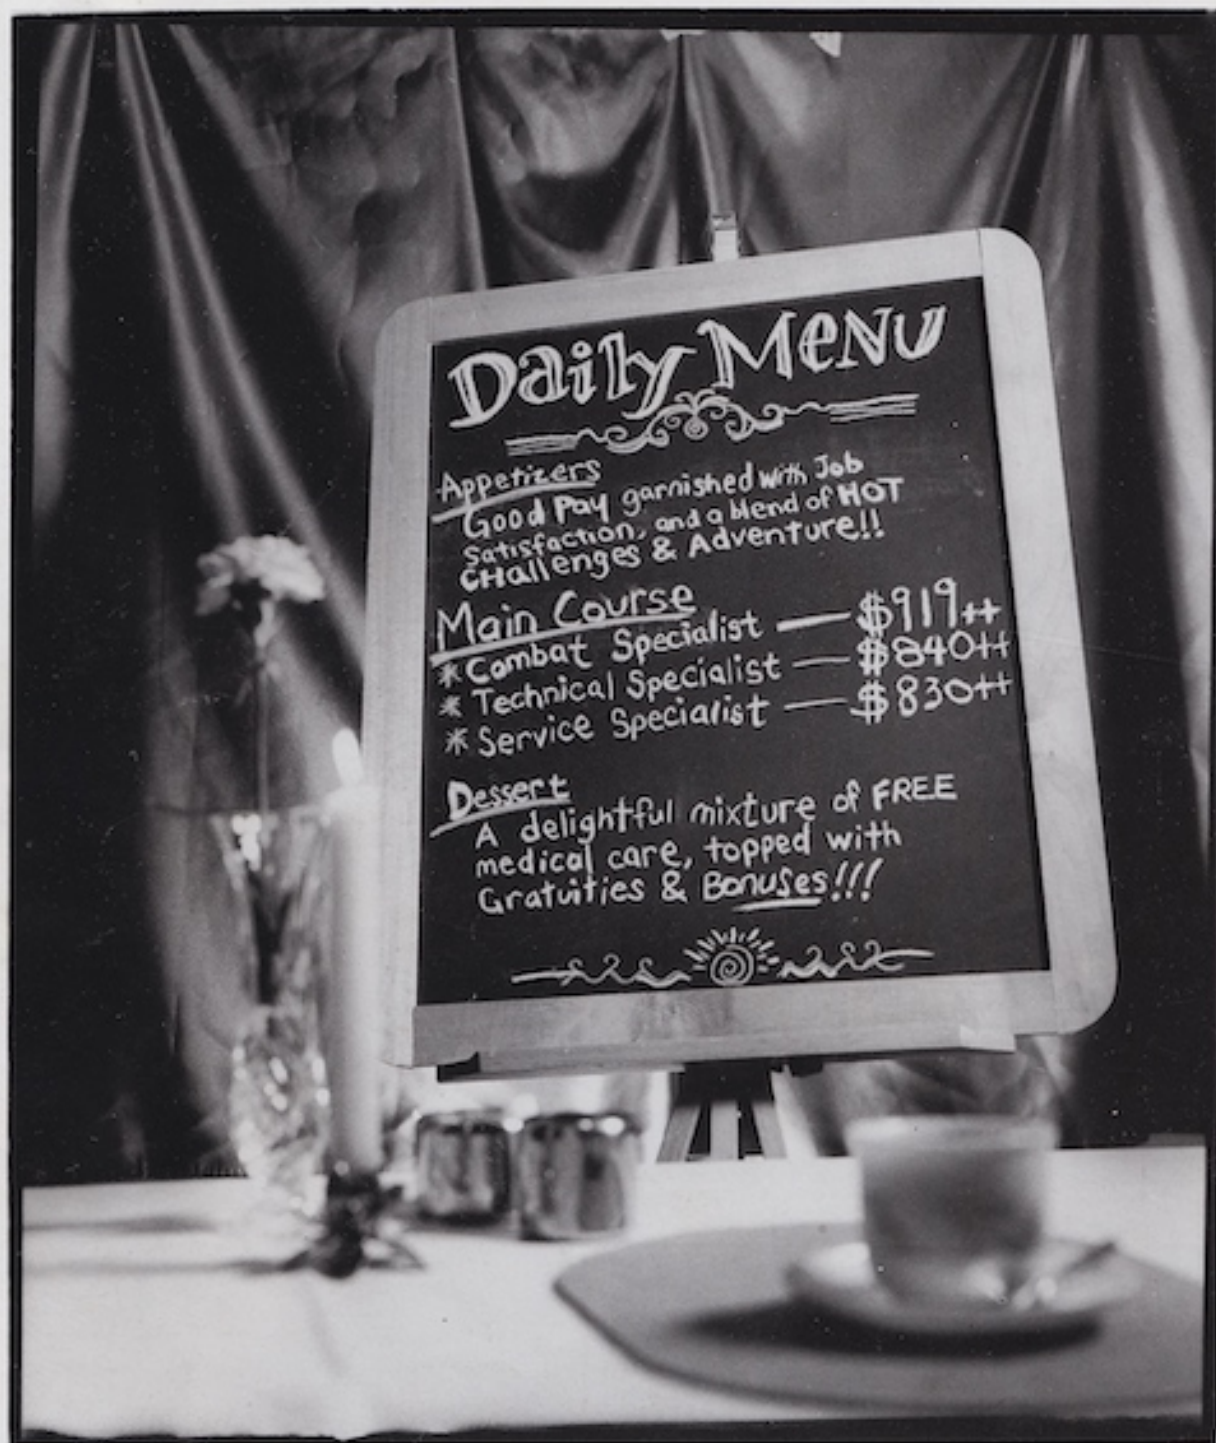 Daily Menu
Appetizers
Good Pay garnished with Job
Satisfaction, and a blend of HOT
CHallenges & Adventure!!
Main Course
* Combat Specialist — $919++
* Technical Specialist — $840++
* Service Specialist — $830++
Dessert
A delightful mixture of FREE
medical care, topped with
Gratuities & Bonuses!!!